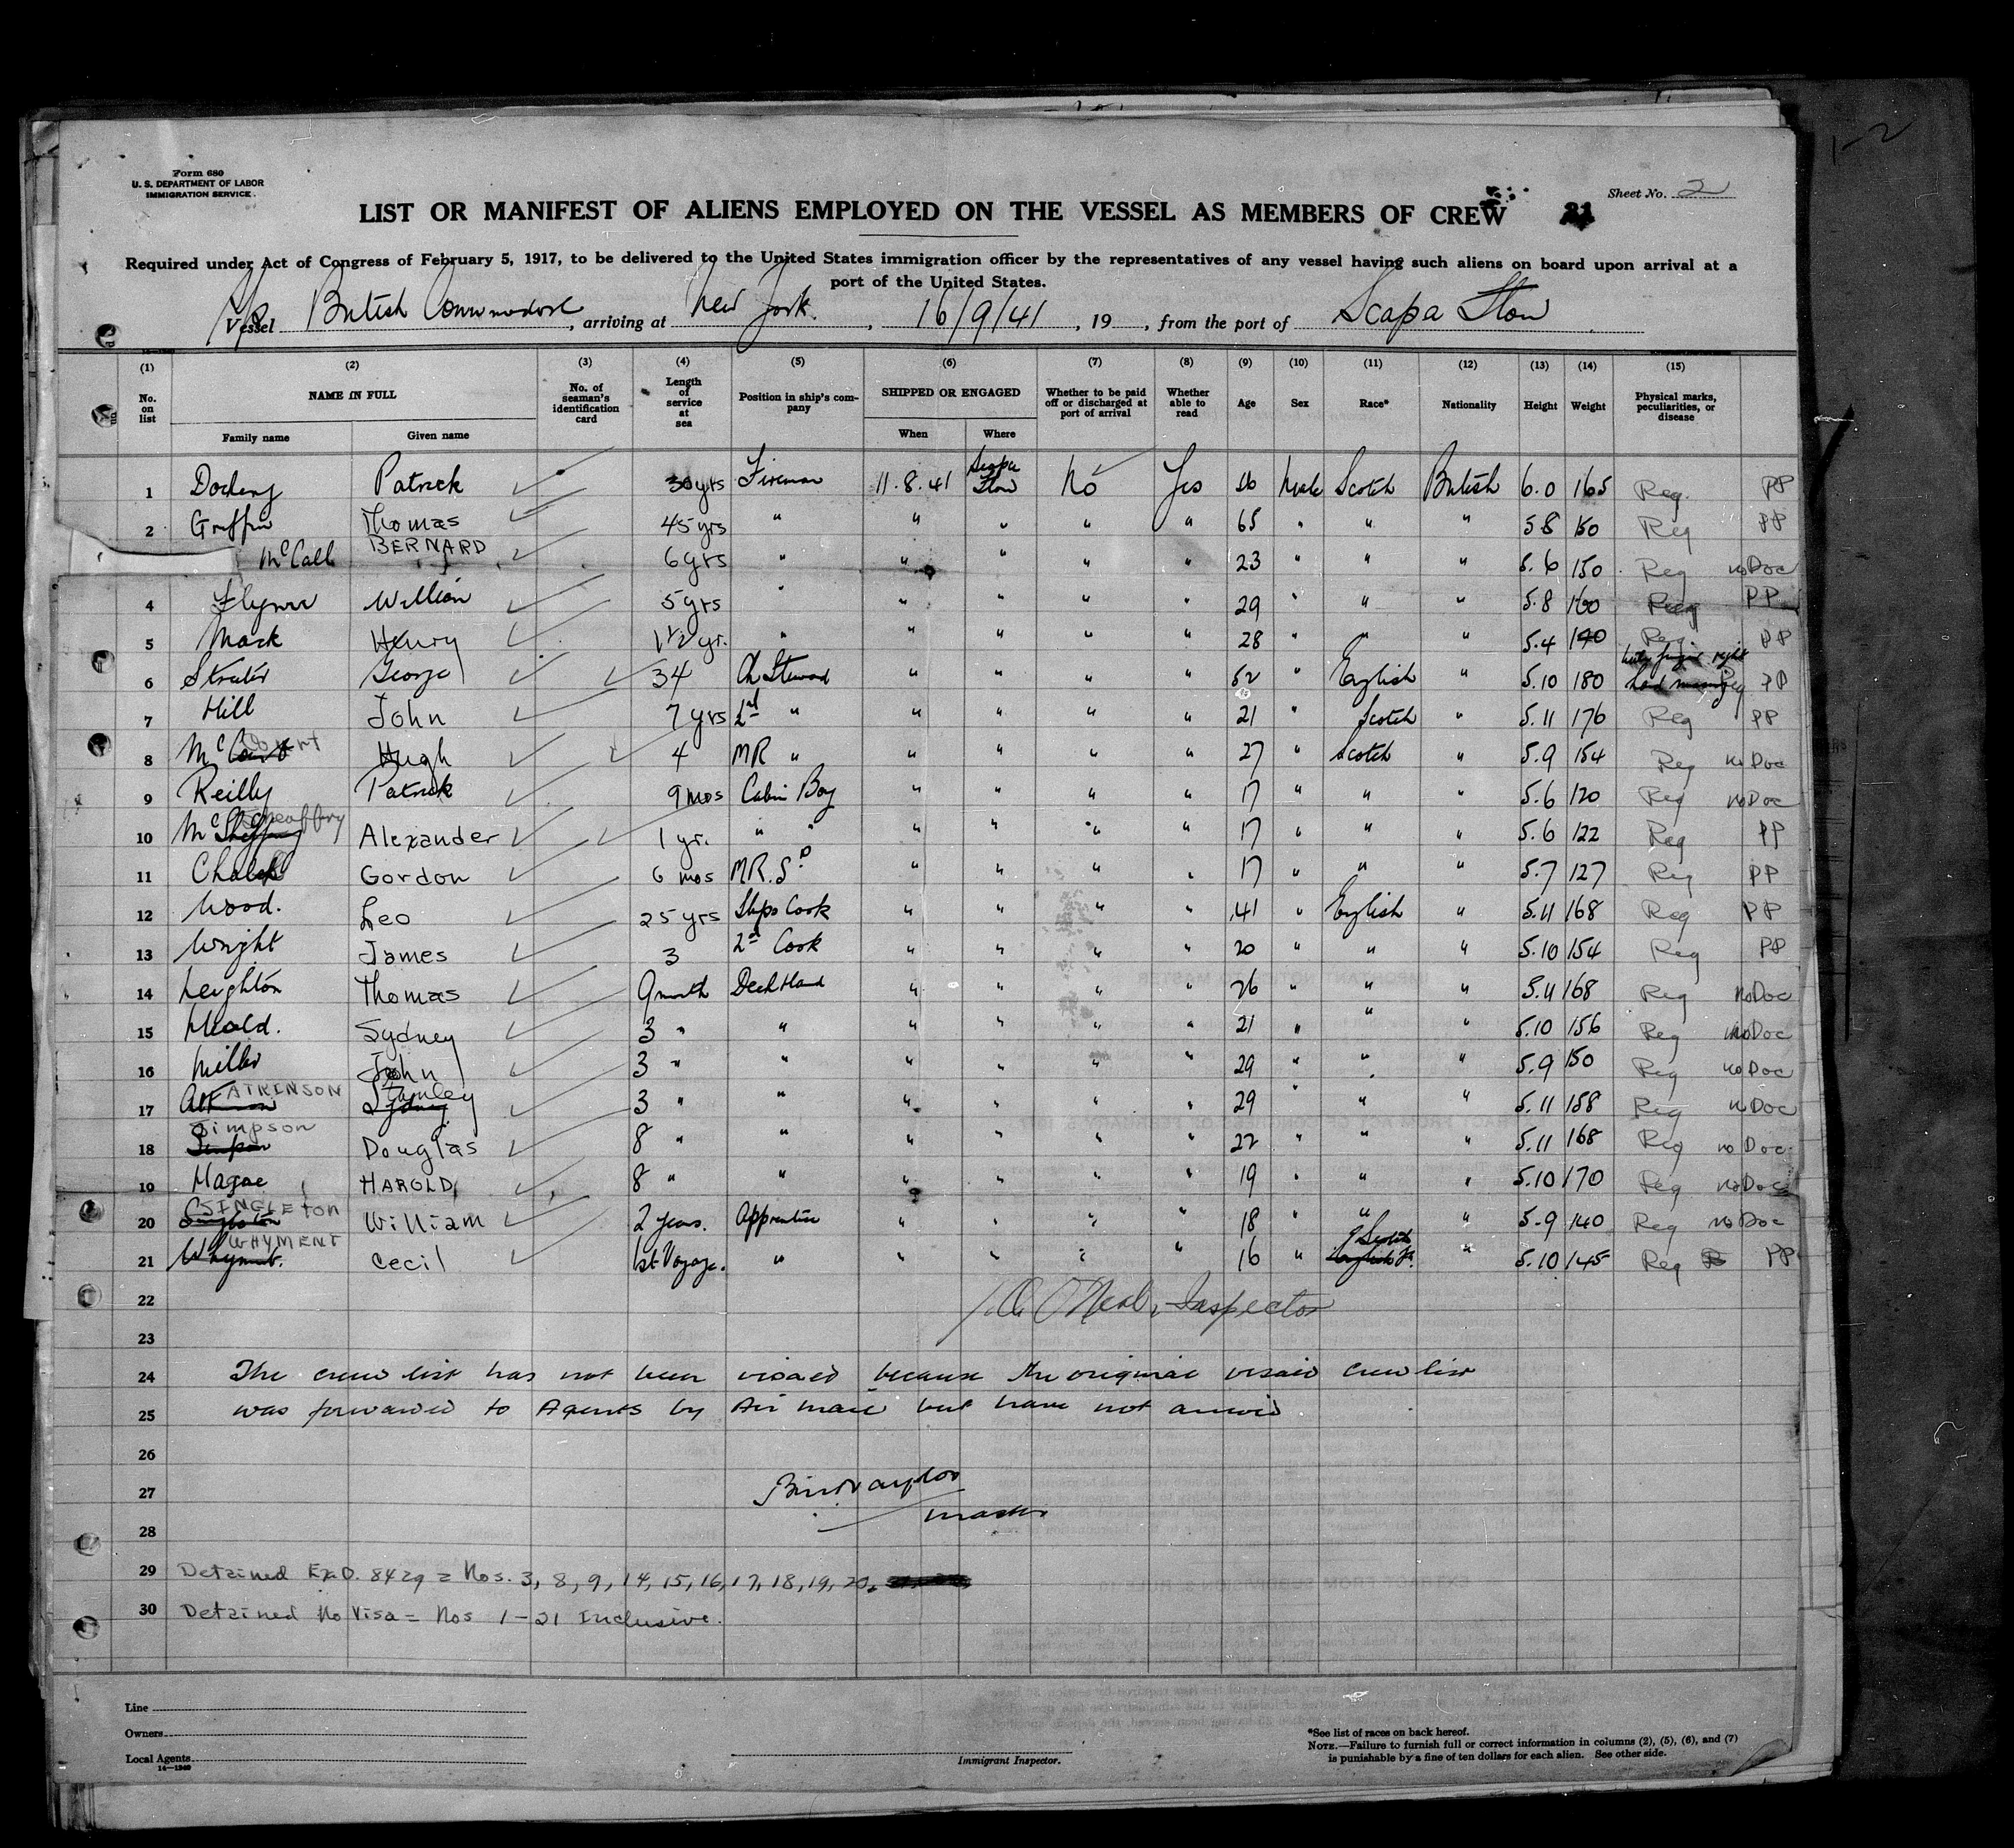 1-2
Form 680
U. S. DEPARTMENT OF LABOR
IMMIGRATION SERVICE
Sheet No. 2
LIST OR MANIFEST OF ALIENS EMPLOYED ON THE VESSEL AS MEMBERS OF CREW 21
Required under Act of Congress of February 5, 1917, to be delivered to the United States immigration officer by the representatives of any vessel having such aliens on board upon arrival at a
port of the United States.
Vessel British Commodore, arriving at New York., 16/9/41, 19 , from the port of Scapa Flow
(1) (2) (3) (4) (5) (6) (7) (8) (9) (10) (11) (12) (13) (14) (15)
No. on list NAME IN FULL No. of seaman's identification card Length of service at sea Position in ship's company SHIPPED OR ENGAGED Whether to be paid off or discharged at port of arrival Whether able to read Age Sex Race* Nationality Height Weight Physical marks, peculiarities, or disease
Family name Given name When Where
1 Patrick 30 yrs Fireman 11.8.41 Scapa Flow No Yes Male Scotch British 6.0 165 Reg. PP
2 Griffin Thomas 45 yrs " " " " " 65 " " " 5 8 150 Reg PP
McCall BERNARD 6 yrs " " " " " 23 " " " 5.6 150 Reg no Doc
4 Flynn William 5 yrs " " " " " 29 " " " 5.8 160 Reg PP
5 Mack Henry 1 1/2 yr. " " " " " 28 " " " 5.4 190 Reg PP
6 George 34 Ch Steward " " " " 52 " English " 5.10 180 Reg PP
7 Hill John 7 yrs 2nd " " " " " 21 " Scotch " 5.11 176 Reg PP
8 McCourt Hugh 4 MR " " " " " 27 " Scotch " 5.9 154 Reg no Doc
9 Reilly Patrick 9 mos Cabin Boy " " " " 17 " " " 5.6 120 Reg no Doc
10 McSheaffrey Alexander 1 yr. " " " " " " 17 " " " 5.6 122 Reg PP
11 Gordon 6 mos MR. S " " " " 17 " " " 5.7 127 Reg PP
12 Wood. Leo 25 yrs Ships Cook " " " " 41 " English " 5.11 168 Reg PP
13 Wright James 3 2nd Cook " " " " 20 " " " 5.10 154 Reg PP
14 Leighton Thomas 9 month Deck Hand " " " " 26 " " " 5.11 168 Reg no Doc
15 Sydney 3 " " " " " " 21 " " " 5.10 156 Reg no Doc
16 Miller John 3 " " " " " " 29 " " " 5.9 150 Reg no Doc
17 ATKINSON Stanley 3 " " " " " " 29 " " " 5.11 158 Reg no Doc
18 Simpson Douglas 8 " " " " " " 22 " " " 5.11 168 Reg no Doc
19 HAROLD 8 " " " " " " 19 " " " 5.10 170 Reg no Doc
20 SINGLETON William 2 years. Apprentice " " " " 18 " " " 5.9 140 Reg no Doc
21 WHYMENT Cecil 1st Voyage. " " " " " 16 " Scotch " 5.10 145 Reg PP
22 O'Neal, Inspector
23
24 The crew list has not been visaed because the original visaed crew list
25 was forwarded to Agents by Air mail but have not arrived
26
27
master
28
29 Detained Ex.O. 8429 = Nos. 3, 8, 9, 14, 15, 16, 17, 18, 19, 20.
30 Detained No Visa = Nos 1-21 Inclusive.
Line
Owners
Local Agents
14-1240
Immigrant Inspector.
*See list of races on back hereof.
NOTE.—Failure to furnish full or correct information in columns (2), (5), (6), and (7)
is punishable by a fine of ten dollars for each alien. See other side.